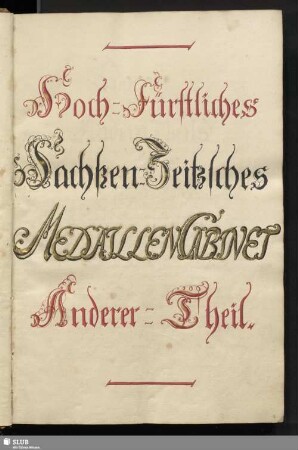 Hoch-Fürstliches
Sachßen-Zeitzsches
MEDAILLEN CABINET
Anderer-Theil.
SLUB
Wir führen Wissen.